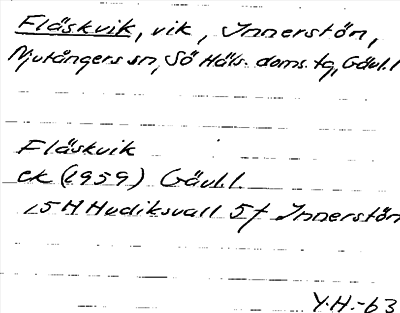 Fläskvik, vik, Innerstön,
Njutångers sn, Sö Häls. doms. tg, Gävl. l
Fläskvik
ek (1959) Gävl. l.
15H Hudiksvall 5f Innerstön
Y.H.-63